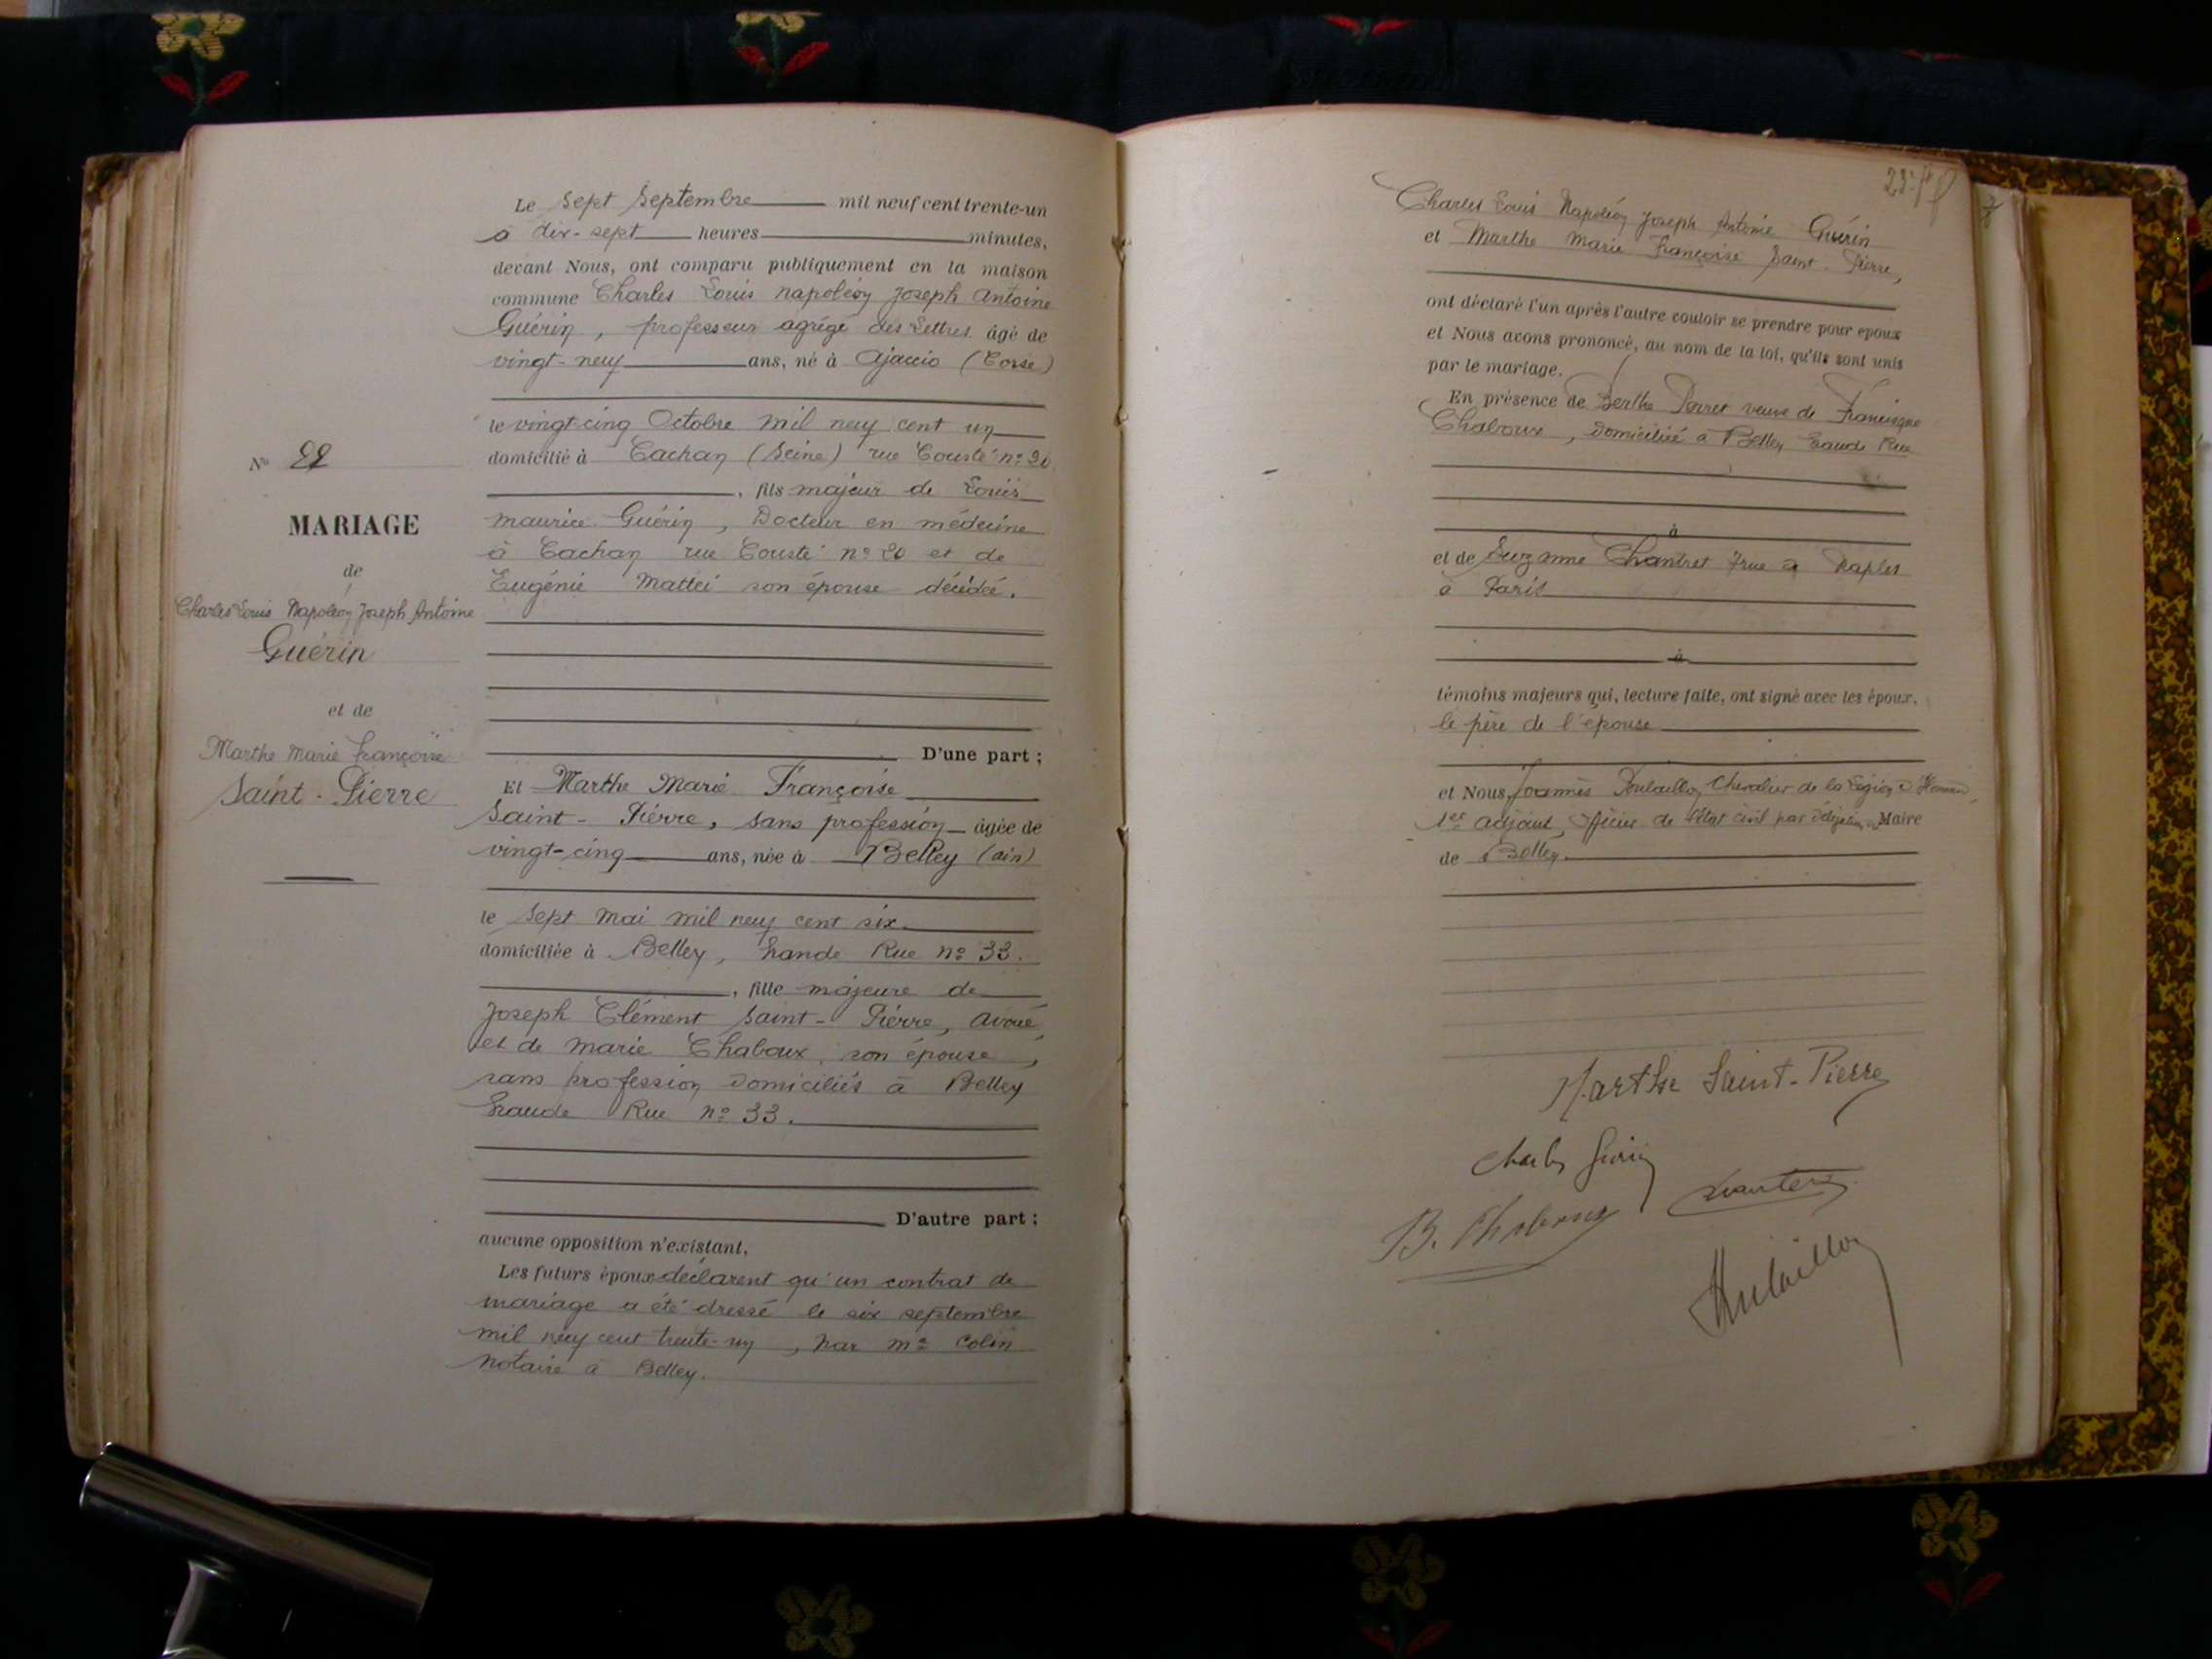 Le sept Septembre mil neuf cent trente-un
à dix-sept heures minutes,
devant Nous, ont comparu publiquement en la maison
commune Charles Louis Napoléon Joseph Antoine
Guérin, professeur agrégé des Lettres âgé de
vingt-neuf ans, né à Ajaccio (Corse)
le vingt-cinq Octobre mil neuf cent un
domicilié à Cachan (Seine) rue Cousté n° 20
, fils majeur de Louis
Maurice Guérin, Docteur en médecine
à Cachan rue Cousté n° 20 et de
Eugénie Mattei son épouse décédée.
D'une part ;
Et Marthe Marie Françoise
Saint-Pierre, sans profession âgée de
vingt-cinq ans, née à Belley (ain)
le sept Mai mil neuf cent six
domiciliée à Belley, Grande Rue n° 33.
, fille majeure de
Joseph Clément Saint-Pierre, avoué
et de Marie Chaboux, son épouse,
sans profession domiciliés à Belley
Grande Rue n° 33.
D'autre part ;
aucune opposition n'existant,
Les futurs époux déclarent qu'un contrat de
mariage a été dressé le six septembre
mil neuf cent trente-un, par Me Colin
notaire à Belley.
N° 22
MARIAGE
de
Charles Louis Napoléon Joseph Antoine
Guérin
et de
Marthe Marie Françoise
Saint-Pierre
Charles Louis Napoléon Joseph Antoine Guérin
et Marthe Marie Françoise Saint-Pierre,
ont déclaré l'un après l'autre vouloir se prendre pour époux
et Nous avons prononcé, au nom de la loi, qu'ils sont unis
par le mariage.
En présence de Berthe Perret veuve de Francisque
Chaboux, domiciliée à Belley Grande Rue
à
et de Suzanne Chantret 7 rue de Naples
à Paris
à
témoins majeurs qui, lecture faite, ont signé avec les époux,
le père de l'épouse
et Nous, Joannès Chevalier de la Légion d'Honneur,
1er adjoint, Officier de l'état civil par délégation Maire
de Belley.
Marthe Saint-Pierre
Charles Guérin
B. Chaboux